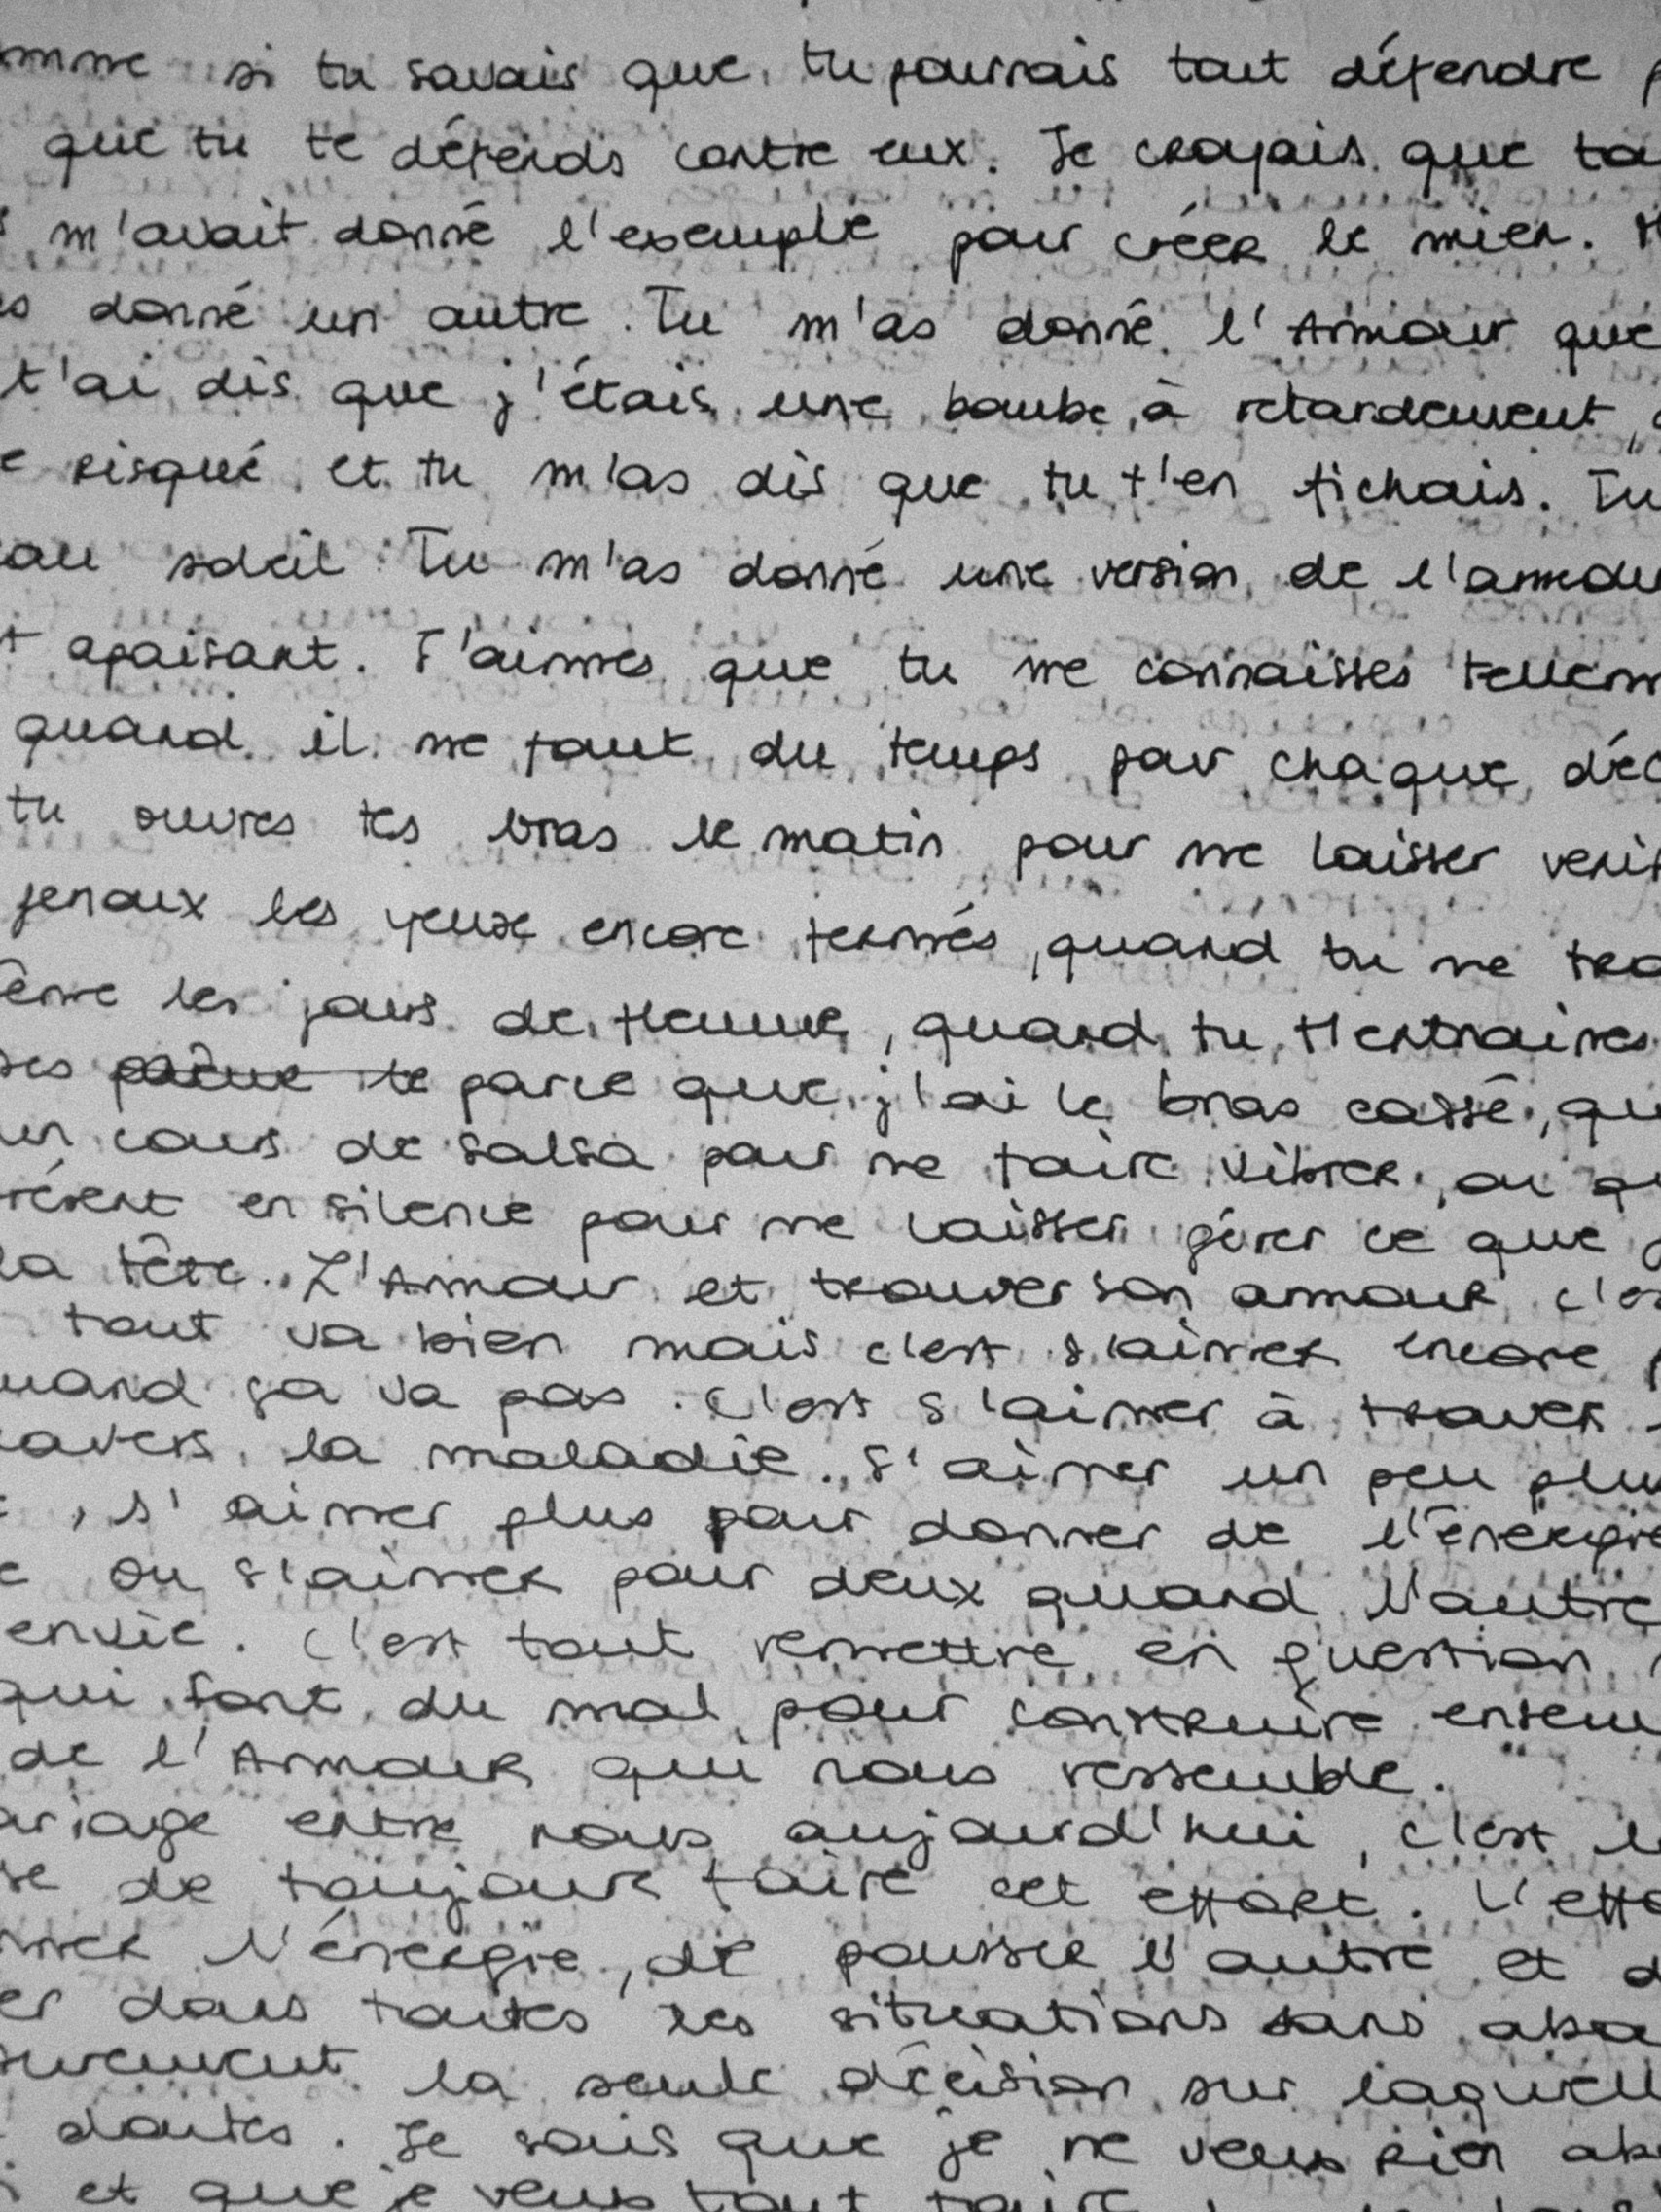 omme si tu savais que tu pourrais tout défendre p
que tu te défends contre eux. Je croyais que to
m'avait donné l'exemple pour créer le mien. M
s donné un autre. Tu m'as donné l'Amour que
t'ai dis que j'étais une bombe à retardement,
e risqué et tu m'as dis que tu t'en fichais. Tu
au soleil. Tu m'as donné une version de l'amou
t apaisant. J'aimes que tu me connaisses tellem
quand il me faut du temps pour chaque déc
tu ouvres tes bras le matin pour me laisser venir
genoux les yeux encore fermés, quand tu me
ême les jours de flemme, quand tu t'entraines
ses parce que j'ai le bras cassé, qu
un cours de salsa pour me faire vibrer, ou qu
résent en silence pour me laisser gérer ce que j
la tête. L'Amour et trouver son amour c'es
tout va bien mais c'est s'aimer encore p
uand ça va pas. C'est s'aimer à traver
ravers la maladie. S'aimer un peu plus
, s'aimer plus pour donner de l'énergie
e ou s'aimer pour deux quand l'autre
envie. C'est tout remettre en question
qui font du mal pour construire ensem
de l'Amour qui nous ressemble.
ariage entre nous aujourd'hui, c'est l
se de toujour faire cet effort. L'effo
nner l'énergie, de pousser l'autre et d
er dans toutes les situations sans aba
surement la seule décision sur laquell
doutes. Je sais que je ne veux rien ab
i et que je veux tout faire